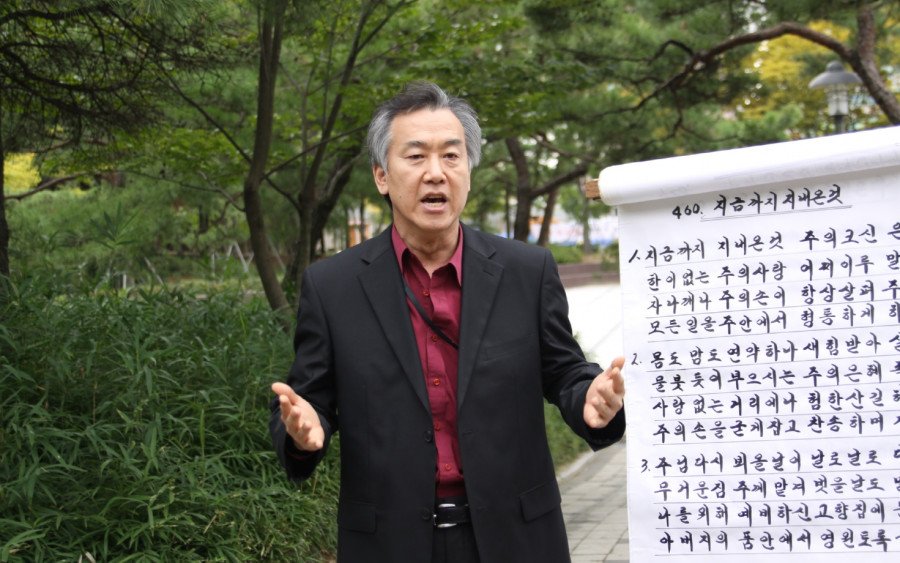 460. 지금까지 지내온것
1. 지금까지 지내온것 주의크신 은
한이없는 주의사랑 어찌이루 말
자나깨나 주의손이 항상살펴 주
모든일을주안에서 형통하게 하
2. 몸도 맘도 연약하나 새힘받아 살
물붓듯이 부으시는 주의은혜 족
사랑없는 거리에나 험한산길 헤
주의 손을 굳게잡고 찬송하며 가
3. 주님다시 뵈올날이 날로날로 다
무거운짐 주께 맡겨 벗을날도 멀
나를위해 예비하신 고향집에 돌
아버지의 품안에서 영원토록